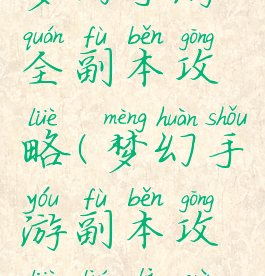 quán fù běn gōng
全副本攻
lüè mèng huàn shǒu
略(梦幻手
yóu fù běn gōng
游副本攻